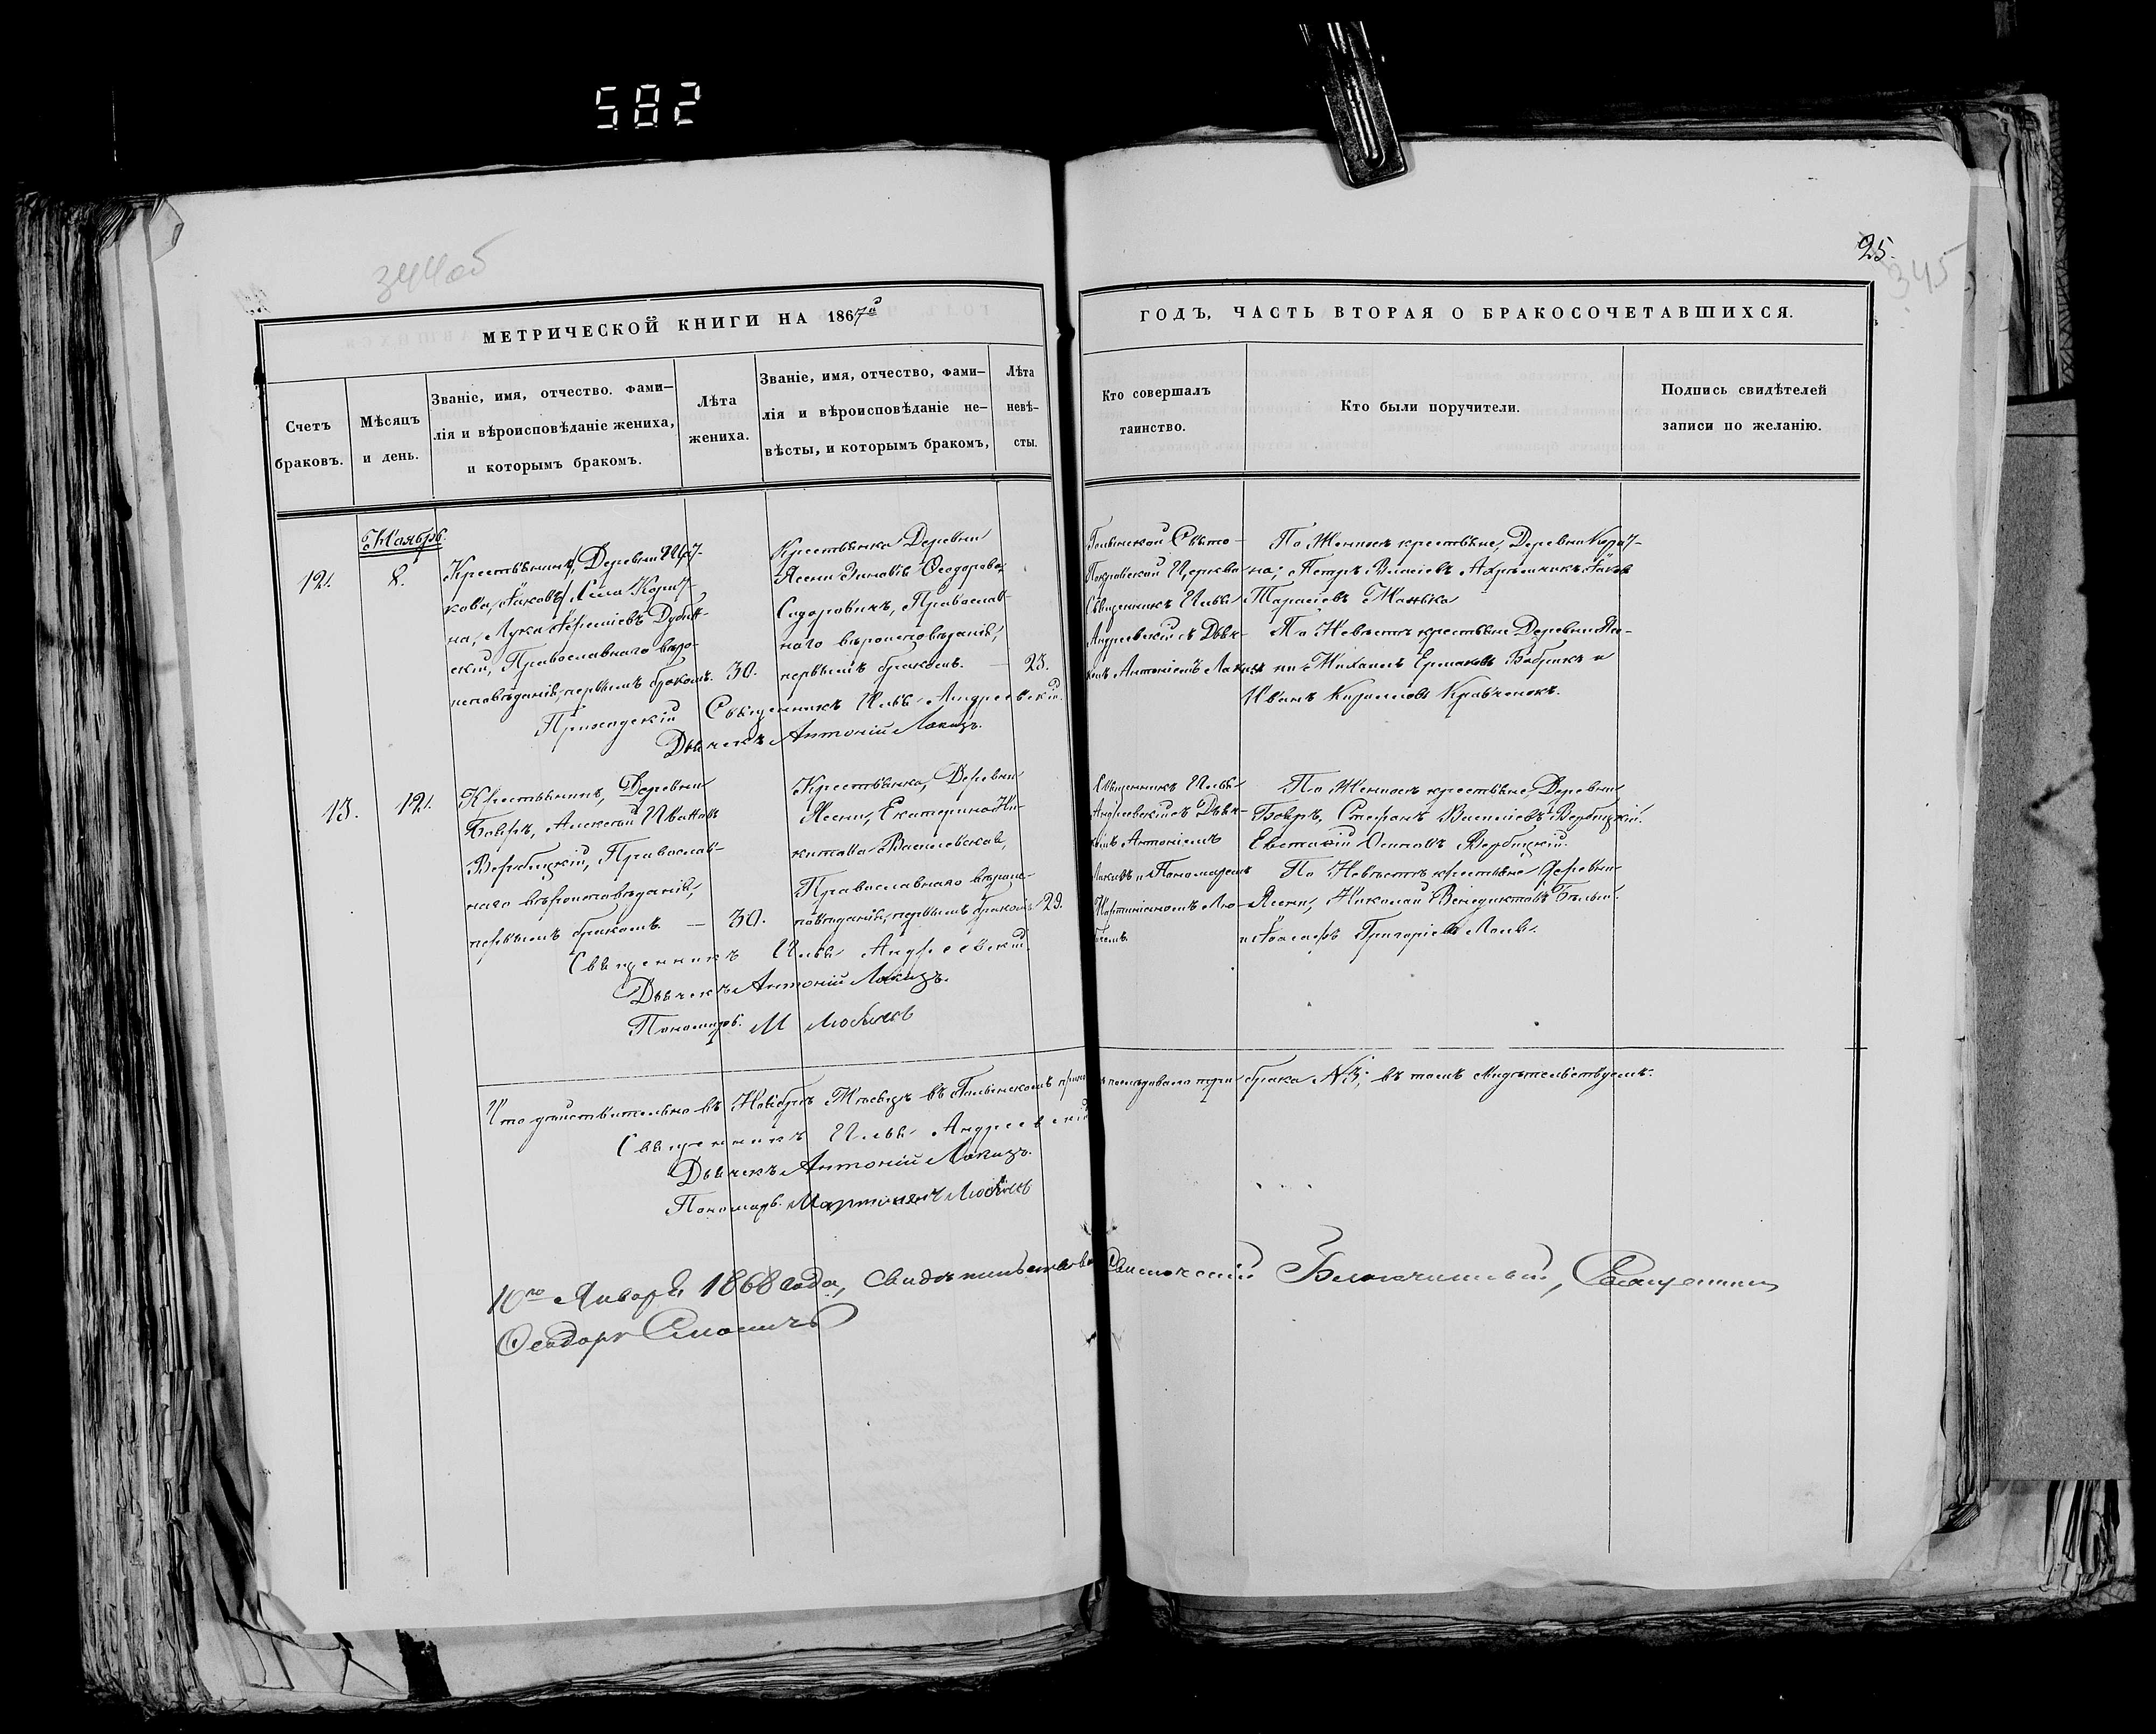 582
344об
25.
345
МЕТРИЧЕСКОЙ КНИГИ НА 1867й
ГОДЪ, ЧАСТЬ ВТОРАЯ О БРАКОСОЧЕТАВШИХСЯ.
Счетъ
браковъ.
Мѣсяцъ
и день.
Званіе, имя, отчество. фами-
лія и вѣроисповѣданіе жениха,
и которымъ бракомъ.
Лѣта
жениха.
Званіе, имя, отчество, фами-
лія и вѣроисповѣданіе не-
вѣсты, и которымъ бракомъ,
Лѣта
невѣ-
сты.
Кто совершалъ
таинство.
Кто были поручители.
Подпись свидѣтелей
записи по желанію.
Ноябрь.
12.
8.
Крестьянинъ, Деревни
Села Кори-
на, Лука
скій, Православнаго вѣро-
исповѣданія, первымъ бракомъ.
30.
Крестьянка Деревни
Ясени Зиновія Ѳеодорова
Сидоровичъ, Православ-
наго вѣроисповѣданія,
первымъ бракомъ. —
25.
Свято-
Покровской Церкви
Священникъ Илья
Андреевскій съ Дьяч-
комъ Антоніемъ
По Женихѣ крестьяне, Деревни Кори-
на; Петръ
Тарасіевъ
По Невѣстѣ крестьяне Деревни Яс-
ни Михаилъ Ермаковъ Бобрикъ и
Иванъ Кирилловъ Кравченокъ.
Приходскій Священникъ Илья Андреевскій.
Дьячекъ Антоній
13.
12.
Крестьянинъ, Деревни
Бояръ, Алексѣй Ивановъ
Вербицкій, Православ-
наго вѣроисповѣданія,
первымъ бракомъ. —
30.
Крестьянка, Деревни
Ясени, Екатерина Ни-
китова Василевская,
Православнаго вѣроис-
повѣданія, первымъ бракомъ
29.
Священникъ Илья
Андреевскій съ Дьяч-
комъ Антоніемъ
и Пономаремъ
Мартиніаномъ Лю-
По Женихѣ крестьяне, Деревни
Бояръ, Стефанъ Василіевъ Вербицкій.
Евстафій Осиповъ Вербицкій.
По Невѣстѣ крестьяне Деревни
Ясени, Николай Венедиктовъ Бѣлый.
и Іосифъ Григоріевъ
Священникъ Илья Андреевскій.
Дьячекъ Антоній
Пономарь. М
Что дѣйствительно въ Ноябрѣ Мѣсяцѣ въ приходѣ послѣдовало три брака №3; въ томъ свидѣтельствуемъ.
Священникъ Илья Андреевскій
Дьячекъ Антоній
Пономарь. Мартиніанъ
10го Января 1868 года, Свидѣтельствовалъ Благочинный, Священникъ
Ѳеодоръ